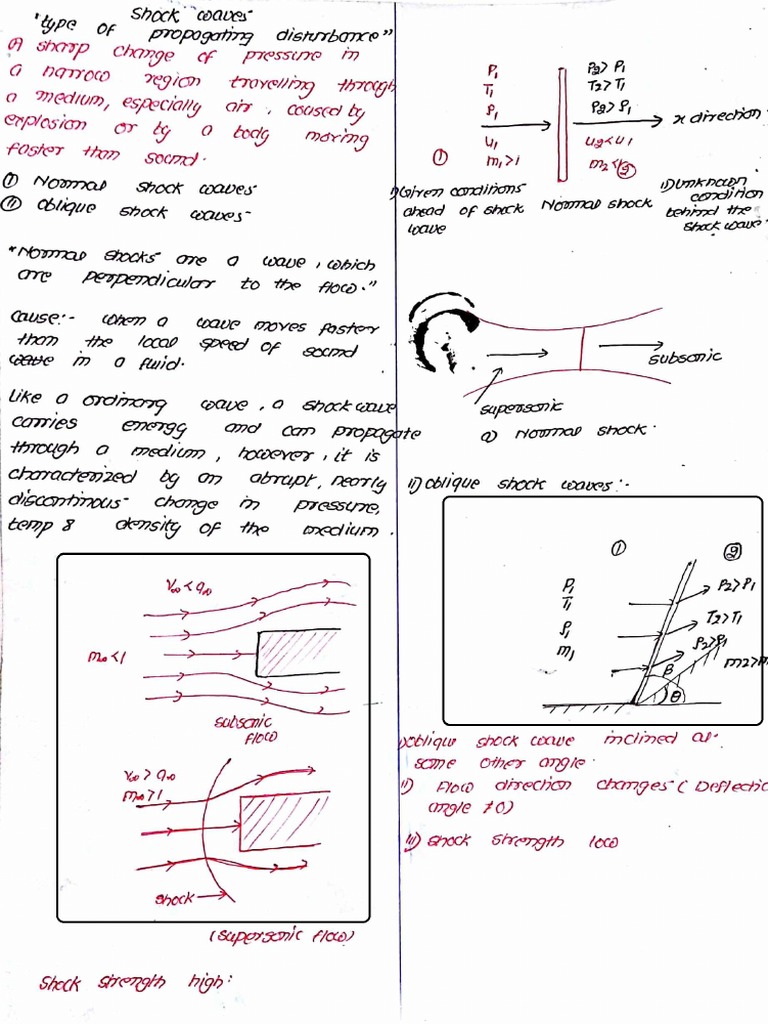 Shock waves
"type of propagating disturbance"
A sharp change of pressure in
a narrow region travelling through
a medium, especially air, caused by
explosion or by a body moving
faster than sound.
① Normal shock waves
② oblique shock waves
"Normal shocks are a wave, which
are perpendicular to the flow."
cause:- when a wave moves faster
than the local speed of sound
wave in a fluid.
Like a ordinary wave, a shock wave
carries energy and can propagate
through a medium, however, it is
characterized by an abrupt, nearly
discontinous change in pressure,
temp & density of the medium.
V∞ < a∞
m∞ < 1
subsonic
flow
V∞ > a∞
m∞ > 1
shock
(supersonic flow)
Shock strength high:
P1 P2 > P1
T1 T2 > T1
ρ1 ρ2 > ρ1
x direction
u1 u2 < u1
① m1 > 1 m2 < ②
i) Given conditions
ahead of shock
wave
Normal shock
ii) unknown
condition
behind the
shock wave
subsonic
supersonic
a) Normal shock.
ii) oblique shock waves:-
① ②
P1 P2 > P1
T1 T2 > T1
ρ1 ρ2 > ρ1
m1 m2 >
β
θ
i) oblique shock wave inclined at
some other angle.
ii) Flow direction changes (Deflectio
angle ≠ 0)
iii) shock strength low